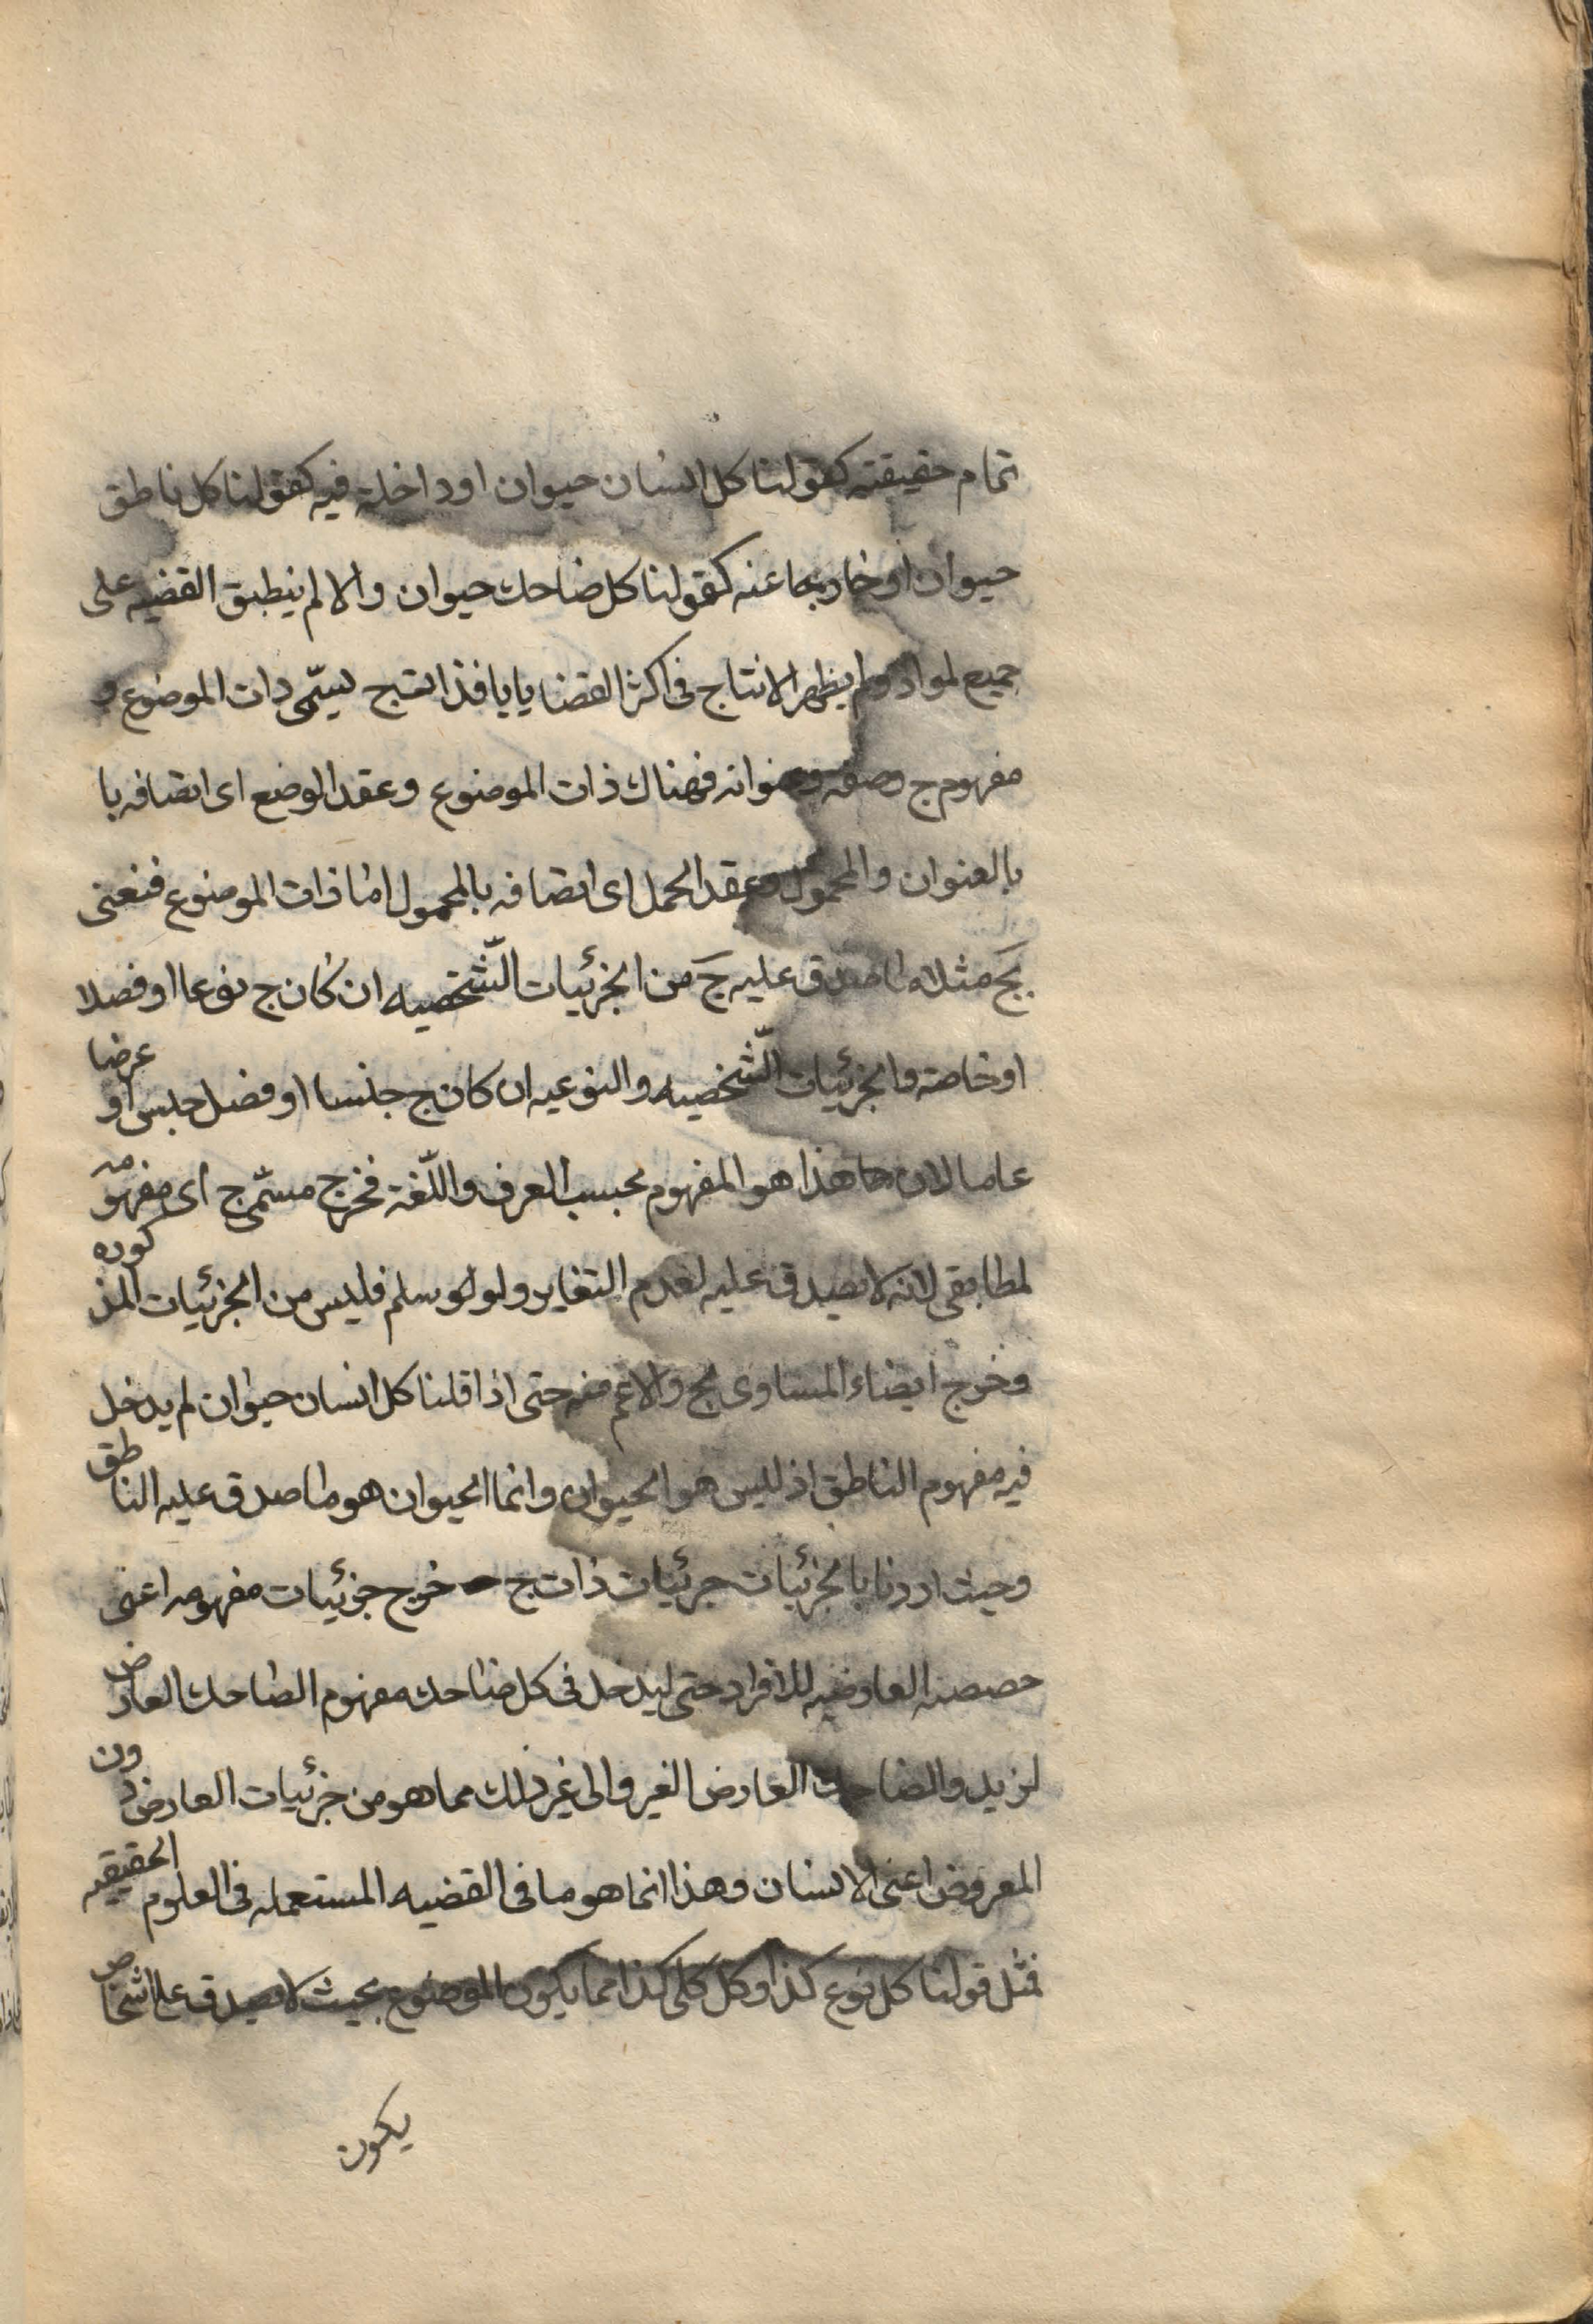 تمام حقيقته كقولنا كل انسان حيوان او داخلة فيه كقولنا كل ناطق
حيوان او خارجا عنه كقولنا كل ضاحك حيوان والا لم ينطبق القضيه على
جميع لمواد ولم يظهر الانتاج فى اكثر القضايا يا فذات ج يسمّى ذات الموضوع و
مفهوم ج وصفه وعنوانه فهناك ذات الموضوع وعقد الوضع اى اتصافه با
بالعنوان والمحمول وعقد الحمل اى اتصافه بالمحمول اما ذات الموضوع فنعنى
بجَ مثلا ما صدق عليه جَ من الجزئيات الشّخصيه ان كان ج نوعا او فصلا
او خاصة والجزئيات الشّخصيه والنوعيه ان كان ج جنسا او فصل جنس او عرضا
عاما لان هذا هو المفهوم بحسب العرف واللّغة فخرج مسمّى ج اى مفهومه
لمطابقى لانه لا يصدق عليه لعدم التغاير ولو سلم فليس من الجزئيات المذكوره
وخرج ايضاء المساوى لج والاعم منه حتى اذا قلنا كل انسان حيوان لم يدخل
فيه مفهوم الناطق اذ ليس هو الحيوان وانما الحيوان هو ما صدق عليه الناطق
وحيث اردنا بالجزئيات جزئيات ذات ج خرج جزئيات مفهومه اعنى
حصصه العارضيه للافراد حتى ليدخل فى كل ضاحك مفهوم الضاحك العارض
لزيد والضاحك العارض الغير والى غير ذلك مما هو من جزئيات العارض دون
المعروض اعنى الانسان وهذا انما هو ما فى القضيه المستعمله فى العلوم الحقيقيه
فمثل قولنا كل نوع كذا وكل كلى كذا مما يكون الموضوع بحيث لا يصدق على اشخاص
يكون